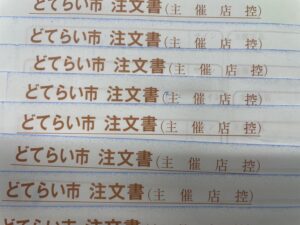 どてらい市 注文書(主 催 店 控)
どてらい市 注文書(主 催 店 控)
どてらい市 注文書(主 催 店 控)
どてらい市 注文書(主 催 店 控)
どてらい市 注文書(主 催 店 控)
どてらい市 注文書(主 催 店 控)
どてらい市 注文書(主 催 店 控)
どてらい市 注文書(主 催 店 控)